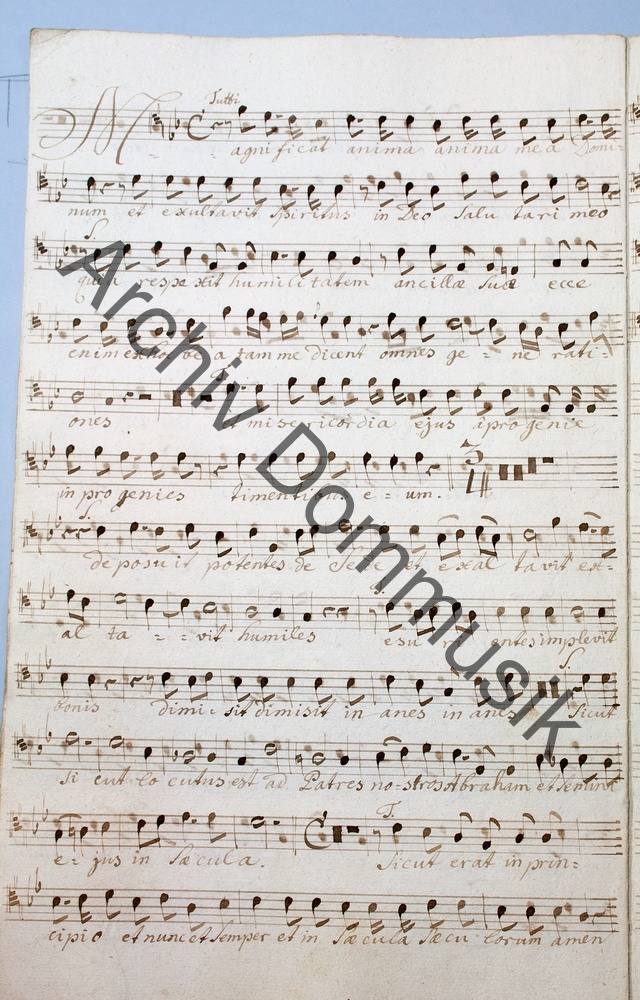 Tutti
Magnificat anima anima mea Domi-
num et exultavit Spiritus in Deo Salu tari meo
S.
quia respexit humilitatem ancillæ Suæ ecce
enim ex hoc be a tam me dicent omnes ge - ne rati-
ones misericordia ejus a progenie
in progenies timentibus e - um.
3 4
S.
deposuit potentes de Sede et exal tavit ex-
al ta - - vit humiles esu ri entes implevit
bonis dimi- sit dimisit in anes in anes
S.
Sicut
si cut lo cutus est ad Patres no- stros Abraham et Semini
T.
e- jus in Sæcula. Sicut erat in prin-
cipio et nunc et Semper et in Sæcula Sæcu lorum amen
Archiv Dommusik